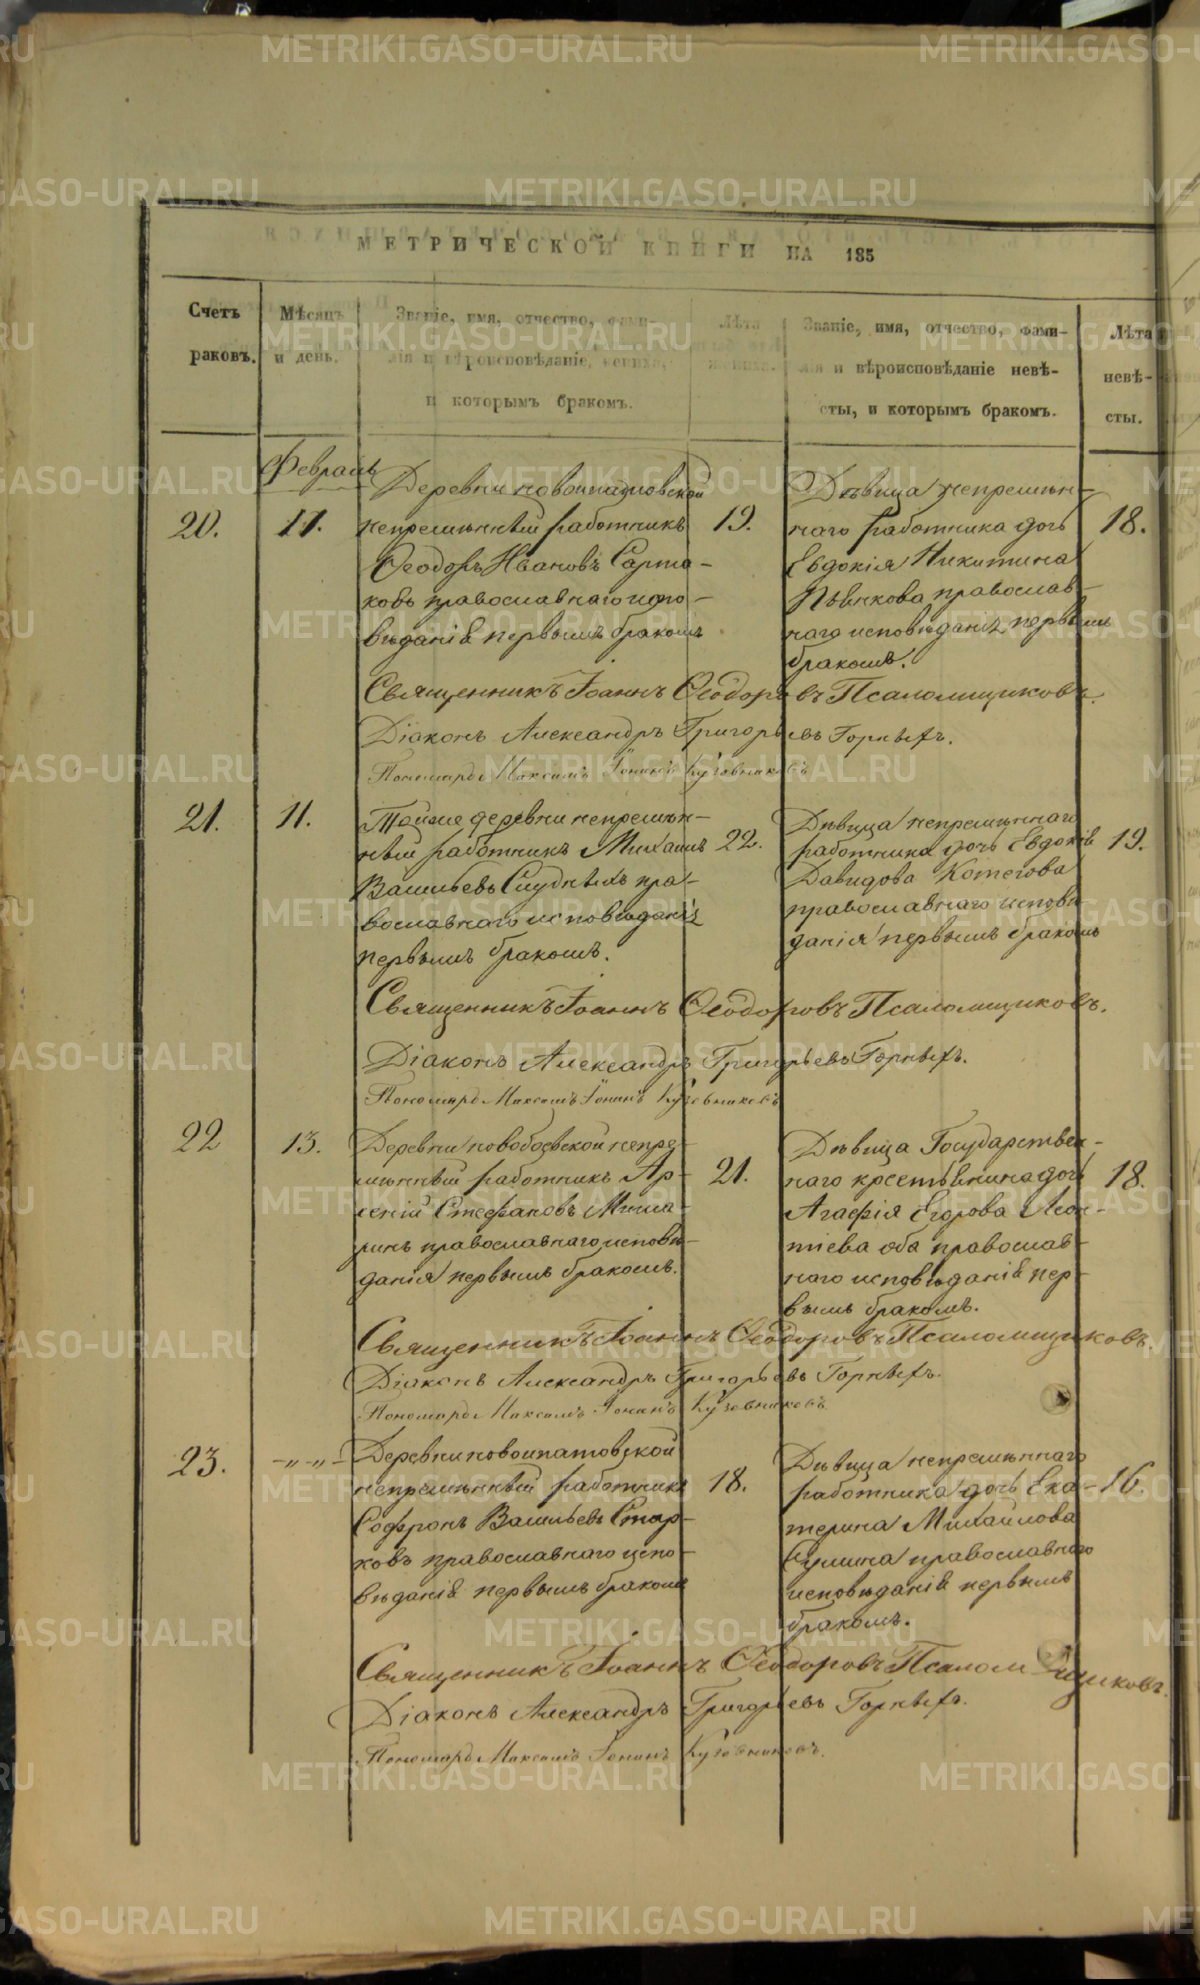 МЕТРИЧЕСКОЙ КНИГИ НА 185
Счетъ
раковъ.
Мѣсяцъ
и день.
Званіе, имя, отчество, фами-
лія и вѣроисповѣданіе, жениха,
и которымъ бракомъ.
Лѣта
жениха.
Званіе, имя, отчество, фами-
лія и вѣроисповѣданіе невѣ-
сты, и которымъ бракомъ.
Лѣта
невѣ-
сты.
Февраль
20.
11.
Деревни новоипатовской
непремѣнный работникъ
Ѳеодоръ Ивановъ Сарта-
ковъ православнаго испо-
вѣданія первымъ бракомъ
19.
Дѣвица непремѣн-
наго работника дочь
Евдокія Никитина
Пьянкова православ-
наго исповѣданія первымъ
бракомъ.
18.
Священникъ Іоаннъ Ѳеодоровъ Псаломщиковъ.
Діаконъ Александръ Григорьевъ Горныхъ.
Пономарь Максимъ Іонинъ Кузовниковъ
21.
11.
Тойже деревни непремѣн-
ный работникъ Михаилъ
Васильевъ Слудныхъ пра-
вославнаго исповѣданія
первымъ бракомъ.
22.
Дѣвица непремѣннаго
работника дочь Евдокія
Давидова Котегова
православнаго исповѣ
данія первымъ бракомъ
19.
Священникъ Іоаннъ Ѳеодоровъ Псаломщиковъ.
Діаконъ Александръ Григорьевъ Горныхъ.
Пономарь Максимъ Іонинъ Кузовниковъ
22
13.
Деревни новобоевской непре-
мѣнный работникъ Ар-
сеній Стефановъ Миша-
ринъ православнаго исповѣ-
данія первымъ бракомъ.
21.
Дѣвица Государствен-
наго крестьянина дочь
Агафія Егорова Леон-
тіева оба православ-
наго исповѣданія пер-
вымъ бракомъ.
18.
Священникъ Іоаннъ Ѳеодоровъ Псаломщиковъ.
Діаконъ Александръ Григорьевъ Горныхъ.
Пономарь Максимъ Іонинъ Кузовниковъ
23.
-„-„-
Деревни новоипатовской
непремѣнный работникъ
Софронъ Васильевъ Стар-
ковъ православнаго испо-
вѣданія первымъ бракомъ
18.
Дѣвица непремѣннаго
работника дочь Ека-
терина Михайлова
православнаго
исповѣданія первымъ
бракомъ.
16.
Священникъ Іоаннъ Ѳеодоровъ Псаломщиковъ.
Діаконъ Александръ Григорьевъ Горныхъ.
Пономарь Максимъ Іонинъ Кузовниковъ.
METRIKI.GASO-URAL.RU